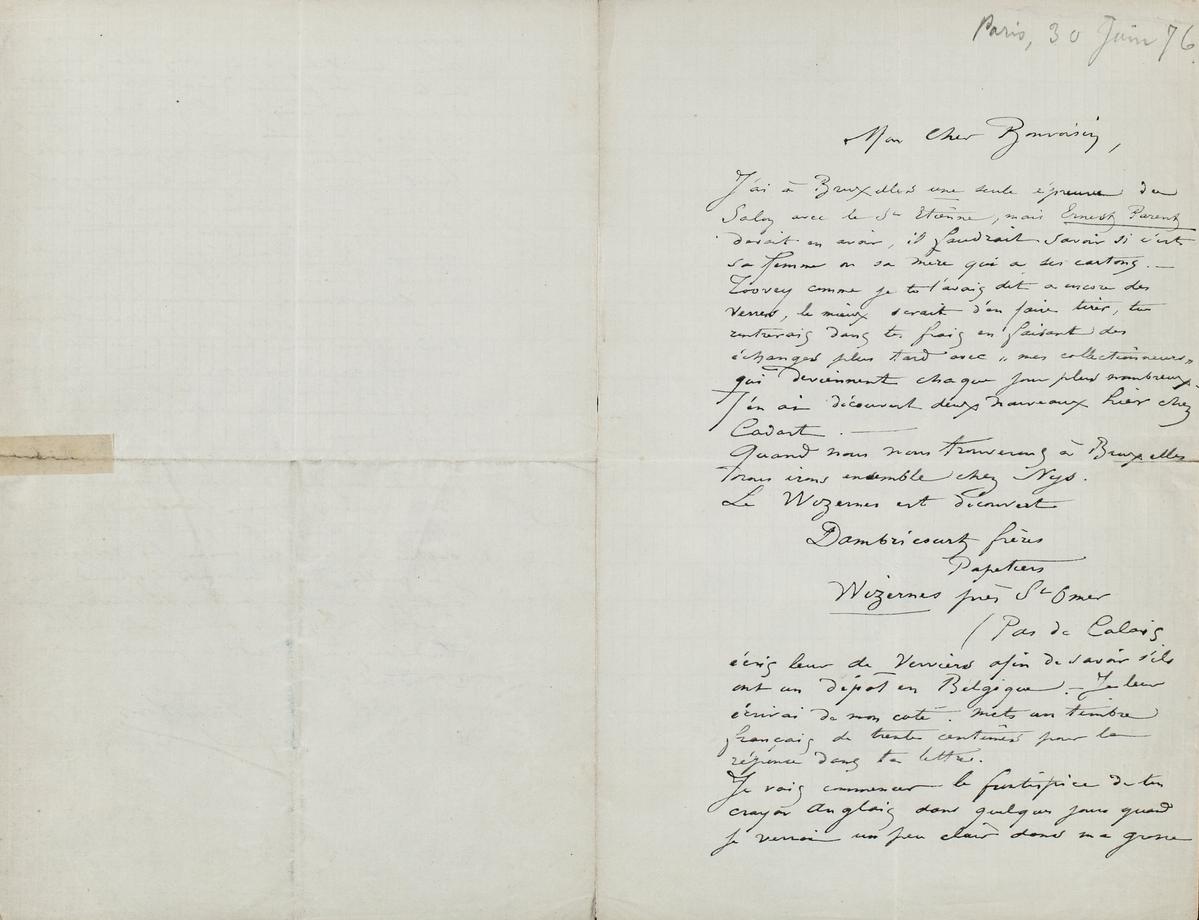 Paris, 30 Juin 76.
Mon Cher Bonvoisin,
J'ai à Bruxelles une seule épreuve du
Salon avec le St Etienne, mais Ernest Parent
devait en avoir, il faudrait savoir si c'est
sa femme ou sa mère qui a ses cartons. —
Toovey comme je te l'avais dit a encore des
verres, le mieux serait d'en faire tirer, tu
rentrerais dans tes frais en faisant des
échanges plus tard avec « mes collectionneurs »
qui deviennent chaque jour plus nombreux.
J'en ai découvert deux nouveaux hier chez
Cadart. —
Quand nous nous trouverons à Bruxelles
nous irons ensemble chez Nys.
Le Wizernes est découvert
Dambricourt frères
Papetiers
Wizernes près St Omer
(Pas de Calais
écris leur de Verviers afin de savoir s'ils
ont un dépôt en Belgique. — Je leur
écrirai de mon coté. Mets un timbre
français de trente centimes pour la
réponse dans ta lettre.
Je vais commencer le frontispice de tes
crayon Anglais dans quelques jours quand
je verrai un peu clair dans ma grosse